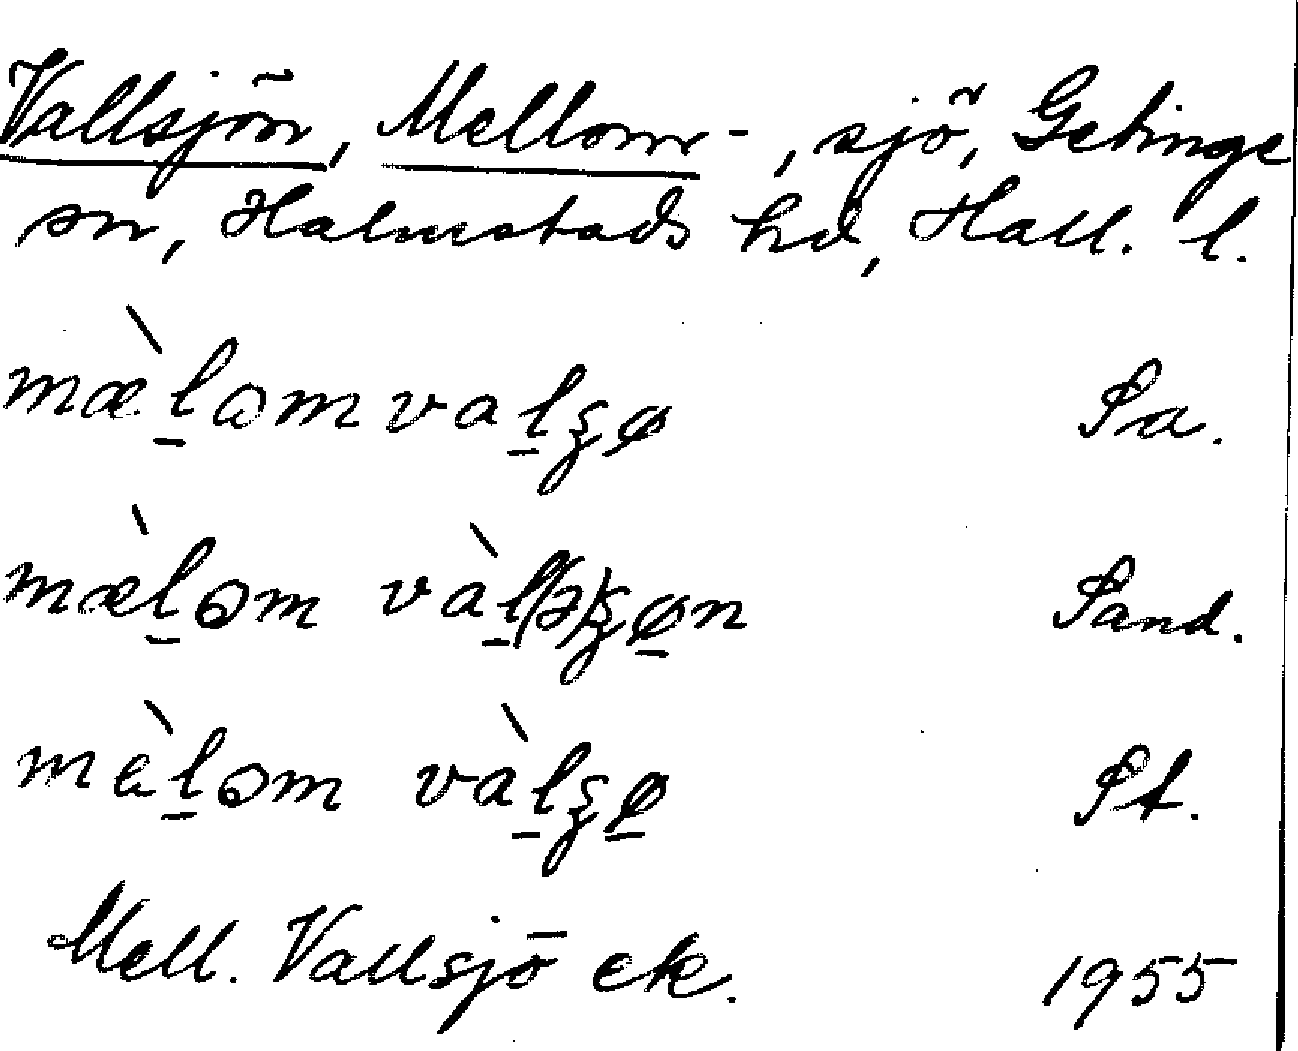 Vallsjön, Mellom-, sjö, Getinge
sn, Halmstads hd, Hall. l.
mæ̀l̲ɷmval̲ʒø Sa.
mæ̀l̲ɷm vàl̲(ə)ʒø̲n Sand.
mèl̲ɷm vàl̲ʒø̲ St.
Mell. Vallsjö ek. 1955